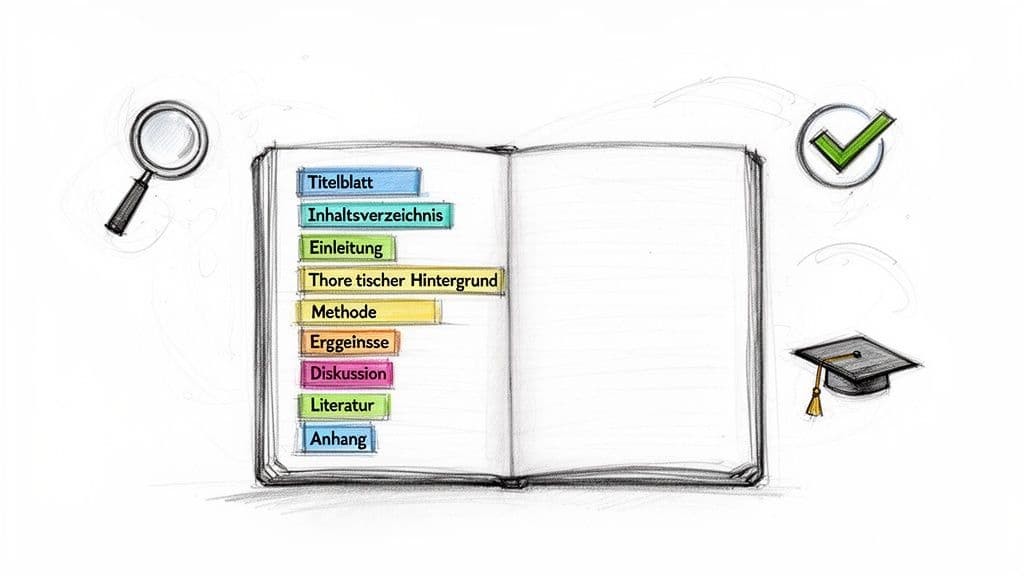 Titelblatt
Inhaltsverzeichnis
Einleitung
Thore tischer Hintergrund
Methode
Erggeinsse
Diskussion
Literatur
Anhang